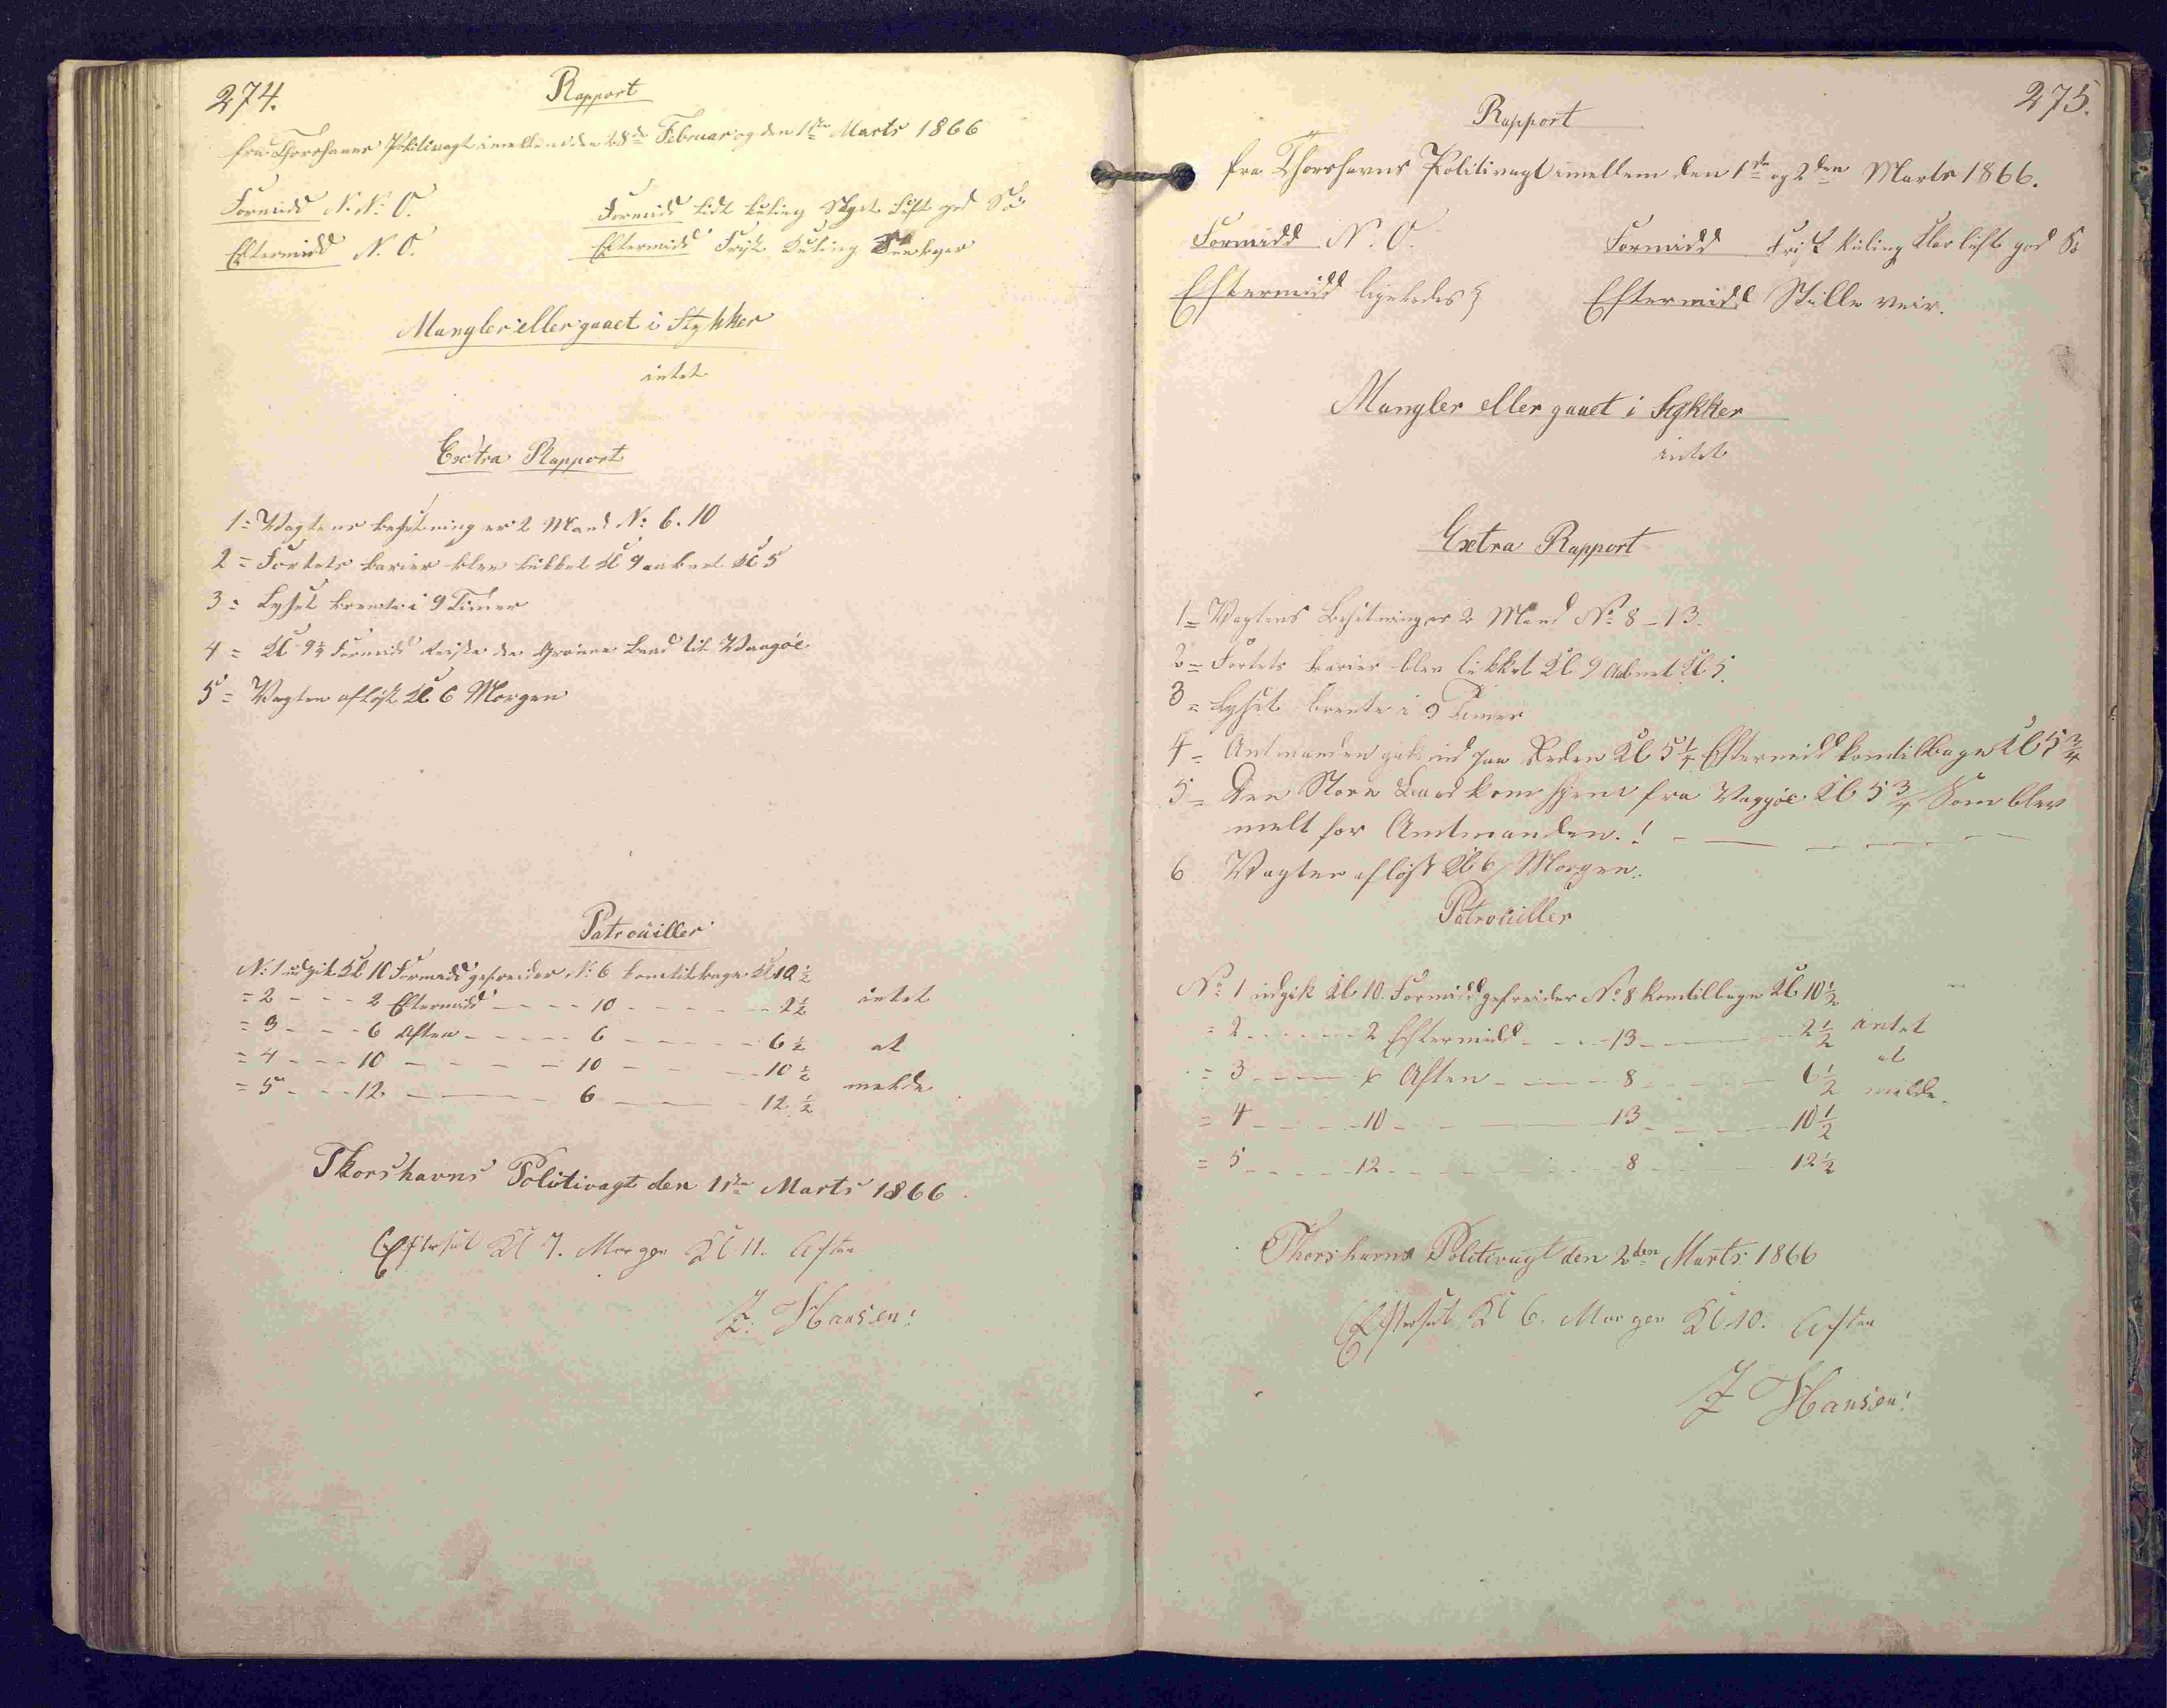 274.
Rapport
fra Thorshavns Politivagt imellem den 28de Februar og den 1ste Marts 1866
Formidd N. N. O.
Formidd lidt kuling Skyet Luft god Sö
Eftermidd N. O.
Eftermidd Frisk Kuling
Mangler eller gaaet i Stykker
intet
Extra Rapport
1= Vagtens besetning er 2 Mand No 6. 10
2= Fortets barier blev lukket Kl 9 aabnet Kl 5
3= Lyset brente i 9 Timer
4= Kl 9½ Formidd Reiste den Grönne Baad til Waagöe
5= Vagten aflöst Kl 6 Morgen
Patrouiller
No 1 udgik Kl 10 Formidd gefreider No 6 kom tilbage Kl 10½
= 2 - - - 2 Eftermidd - - - 10 - - - - - 2½ intet
= 3 - - - 6 Aften - - - - - 6 - - - - - 6½ at
= 4 - - - 10 - - - - - 10 - - - - - 10½
= 5 - - - 12 - - - - - 6 - - - - - 12½ melde
Thorshavns Politivagt den 1ste Marts 1866
Eftersët Kl 7. Morgen Kl 11. Aften
J. Hansen!
275.
Rapport
fra Thorshavns Politivagt imellem den 1ste og 2den Marts 1866.
Formidd N. O.
Formidd Frisk Kuling klar luft god Sö
Eftermidd ligeledes
Eftermidd Stille veir.
Mangler eller gaaet i Stykker
intet
Extra Rapport
1= Vagtens Besitning er 2 Mand No 8 - 13
2= Fortets barier blev lukket Kl 9 Aabnet Kl 5.
3= Lyset brente i 9 Timer
4= Amtmanden gik ud paa Reden Kl 5¼ Eftermidd kom tilbage Kl 5¾
5= Den Store Baad kom hjem fra Vaagöe Kl 5¾ Som blev
melt for Amtmanden.!
6 Vagten aflöst Kl 6 Morgen.
Patrouiller
No 1 udgik Kl 10. Formidd gefreider No 8 kom tilbage Kl 10½
= 2 - - - - - 2 Eftermidd - - - 13 - - - - - 2½ intet
= 3 - - - - 6 Aften - - - - 8 - - - - - 6½ at
melde.
= 4 - - - - 10 - - - - - 13 - - - - - 10½
= 5 - - - - 12 - - - - - 8 - - - - - 12½
Thorshavns Politivagt den 2den Marts 1866
Eftersët Kl 6. Morgen Kl 10. Aften
J Hansen!